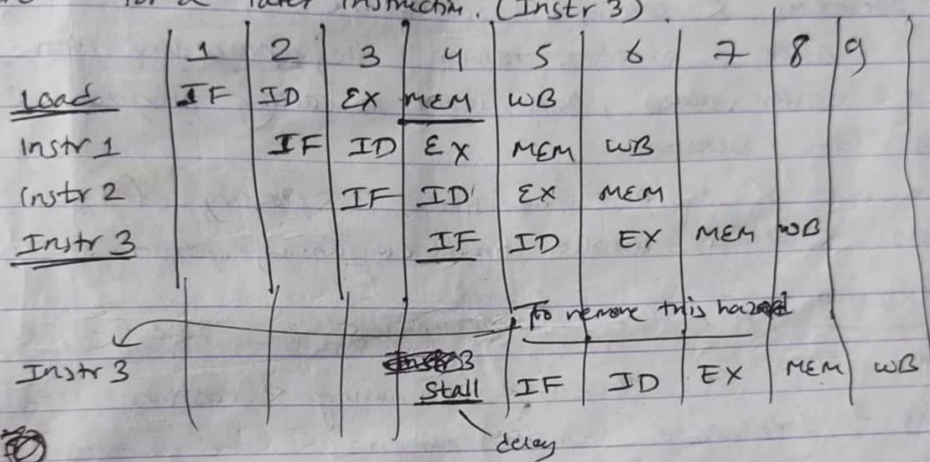 for a later instruction. (Instr 3).
1 2 3 4 5 6 7 8 9
Load IF ID EX MEM WB
Instr 1 IF ID EX MEM WB
Instr 2 IF ID EX MEM
Instr 3 IF ID EX MEM WB
To remove this hazard
Instr 3 Stall IF ID EX MEM WB
delay